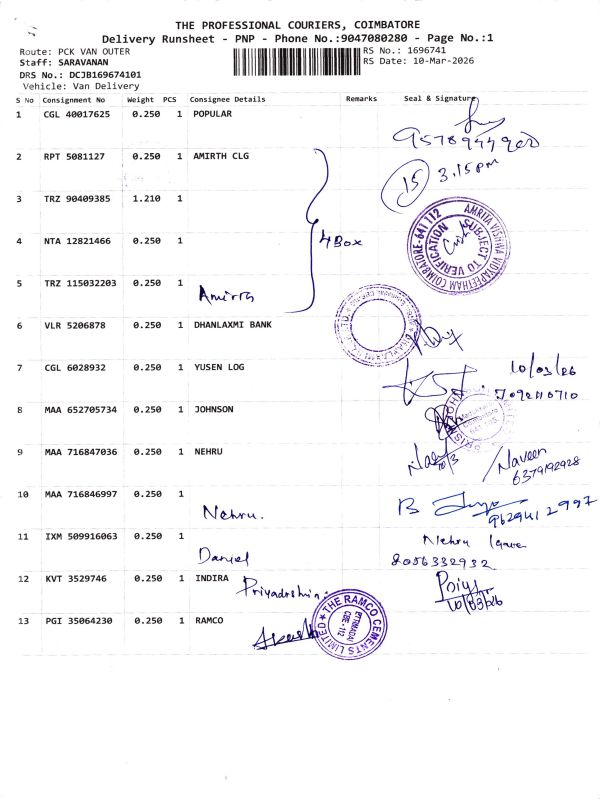 THE PROFESSIONAL COURIERS, COIMBATORE
Delivery Runsheet - PNP - Phone No.:9047080280 - Page No.:1
Route: PCK VAN OUTER RS No.: 1696741
Staff: SARAVANAN RS Date: 10-Mar-2026
DRS No.: DCJB169674101
Vehicle: Van Delivery
S No Consignment No Weight PCS Consignee Details Remarks Seal & Signature
1 CGL 40017625 0.250 1 POPULAR
9578944900
2 RPT 5081127 0.250 1 AMIRTH CLG
15 3.15pm
3 TRZ 90409385 1.210 1
4 NTA 12821466 0.250 1 4 Box
AMRITA VISHWA VIDYAPEETHAM COIMBATORE-641 112
SUBJECT TO VERIFICATION
5 TRZ 115032203 0.250 1
Amirth
6 VLR 5206878 0.250 1 DHANLAXMI BANK
7 CGL 6028932 0.250 1 YUSEN LOG 10/03/26
8 MAA 652705734 0.250 1 JOHNSON
9 MAA 716847036 0.250 1 NEHRU
10/3 / Naveen
6379192928
10 MAA 716846997 0.250 1
Nehru.
11 IXM 509916063 0.250 1 Nehru
Daniel 8056332932
12 KVT 3529746 0.250 1 INDIRA Priyadrshini
10/03/26
13 PGI 35064230 0.250 1 RAMCO
THE RAMCO CEMENTS LIMITED
CBE-112